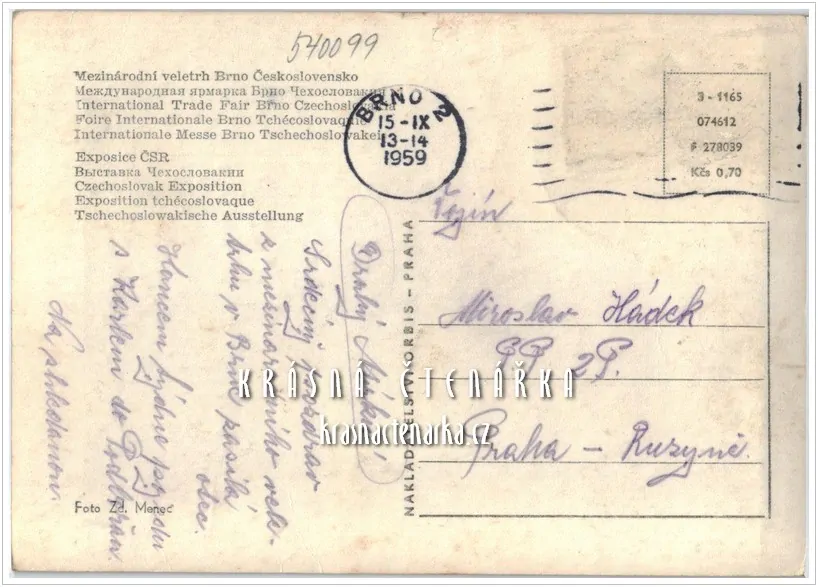 540099
Mezinárodní veletrh Brno Československo
Международная ярмарка Брно Чехословакии
International Trade Fair Brno Czechoslovakia
Foire Internationale Brno Tchécoslovaque
Internationale Messe Brno Tschechoslowakei
Exposice ČSR
Выставка Чехословакии
Czechoslovak Exposition
Exposition tchécoslovaque
Tschechoslowakische Ausstellung
BRNO 2
15-IX
13-14
1959
3-1165
074612
F 278039
Kčs 0,70
Vojín
Miroslav Hádek
2P.
Praha - Ruzyně.
NAKLADATELSTVÍ ORBIS - PRAHA
Drahý
Srdečný pozdrav
z mezinárodního vele-
trhu v Brně posílá
otec.
Koncem týdne
s Karlem do
Na shledanou
Foto Zd. Meneč
KRÁSNÁ ČTENÁŘKA
krasnactenarka.cz